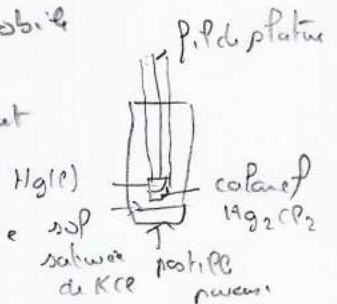 obile
fil de platine
ut
Hg(l)
calomel
Hg2Cl2
e sol
saturée
de KCl
pastille
poreuse